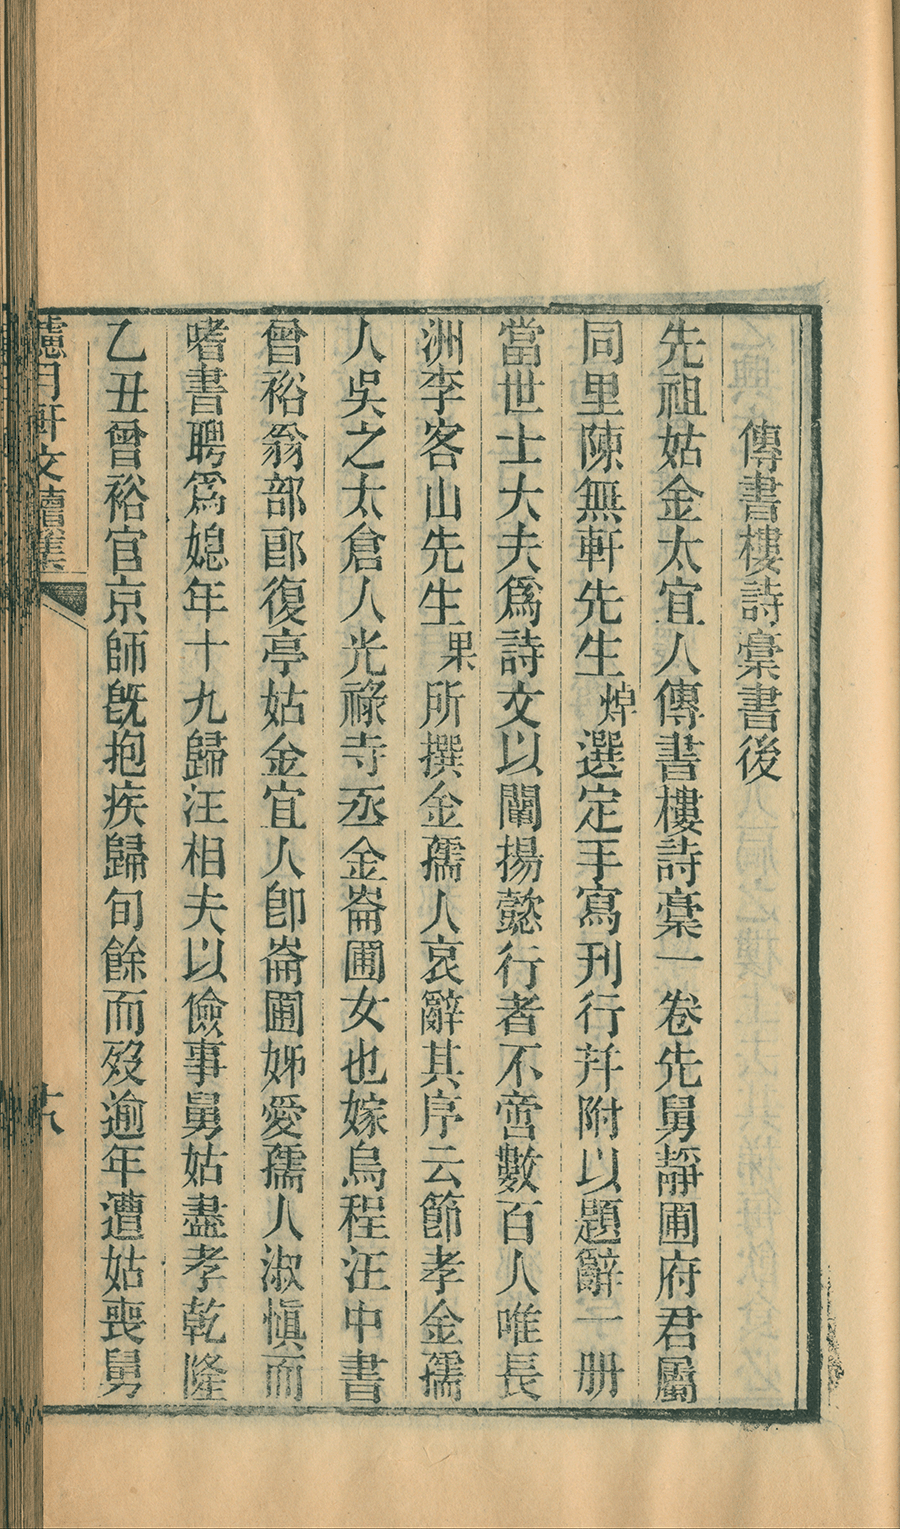 傳書樓詩稾書後
先祖姑金太宜人傳書樓詩稾一卷先舅靜圃府君屬
同里陳無軒先生焯選定手寫刊行幷附以題辭一册
當世士大夫爲詩文以闡揚懿行者不啻數百人唯長
洲李客山先生果所撰金孺人哀辭其序云節孝金孺
人吳之太倉人光祿寺丞金崙圃女也嫁烏程汪中書
曾裕翁部郎復亭姑金宜人卽崙圃姊愛孺人淑愼而
嗜書聘爲媳年十九歸汪相夫以儉事舅姑盡孝乾隆
乙丑曾裕官京師旣抱疾歸旬餘而歿逾年遭姑喪舅
月軒文續集